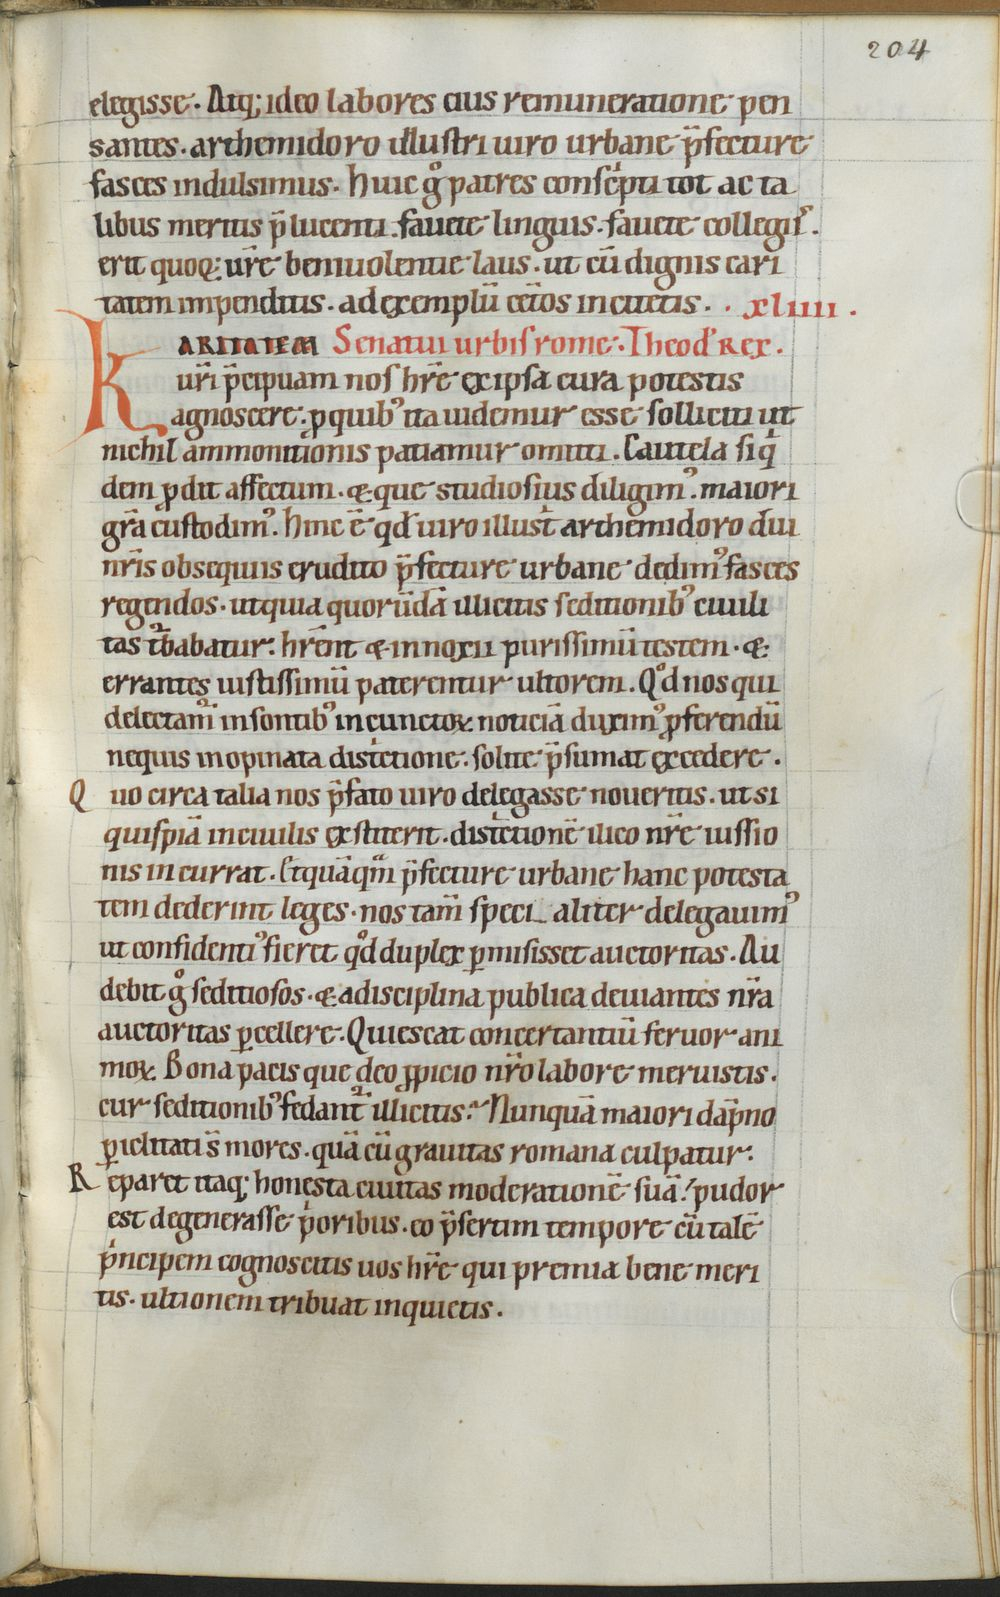 204
elegisse. Atq; ideo labores eius remuneratione pen
santes. arthemidoro illustri uiro urbane p̄fecture
fasces indulsimus. Huic gͦ patres consc̍pti tot ac ta
libus meritis p̄lucenti. fauete linguis. fauete collegiſ̓.
erit quoq; ur̄e beniuolentie laus. ut cū dignis cari
tatem impenditis. ad exemplū cet̄os incitetis. . xliiii .
KARITATEM Senatui urbiſ rome. Theod̓ Rex.
ur̄i p̄cipuam noſ hr̄e ex ipsa cura potestis
agnoscere. ꝑ quib᾽ ita uidemur esse solliciti ut
nichil ammonitionis patiamur omitti. Cautela siq̍
dem ꝓdit affectum. & que studiosius diligim᾽. maiori
gr̄a custodim᾽. Hinc ē qd̓ uiro illust̄ arthemidoro diu
nr̄is obsequiis erudito p̄fecture urbane dedim᾽ fasces
regendos. ut quia quorūdā illicitis seditionib᾽ ciuili
tas t̄babatur. hr̄ent & innoxii purissimū testem. &
errantes iustissimū paterentur ultorem. Qͦd nos qui
delectam̄ insontib᾽ in cunctoꝝ noticiā duxim᾽ ꝓferendū
nequis inopinata dist̍ctione. solite p̄sumat excedere.
Quo circa talia nos p̄fato uiro delegasse noueritis. ut si
quiſpiā inciuilis exstiterit. dist̍ctionē ilico nr̄e iussio
nis incurrat. Et quāqm̄ p̄fecture urbane hanc potesta
tem dederint leges. nos tam̄ speci aliter delegauim᾽
ut confidenti᾽ fieret qͦd duplex ꝑmisisset auctoritas. Au
debit gͦ seditiosos. & a disciplina publica deuiantes nr̄a
auctoritas ꝑcellere. Quiescat concertantiū feruor ani
moꝝ. Bona pacis que deo ꝓpicio nr̄o labore meruistis.
cur seditionib᾽ fedant̄ illicitis. Nunquā maiori dāpno
ꝑiclitati s̄ mores. quā cū grauitas romana culpatur.
Reparet itaq; honesta ciuitas moderationē suā. pudor
est degenerasse p̍oribus. eo p̄sertim tempore cū talē
p̍ncipem cognoscitis uos hr̄e qui premia bene meri
tis. ultionem tribuat inquietis.